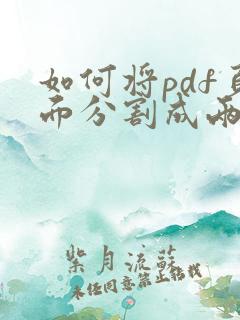 如何将pdf页
面分割成两
紫月流苏
未经同意禁止转载